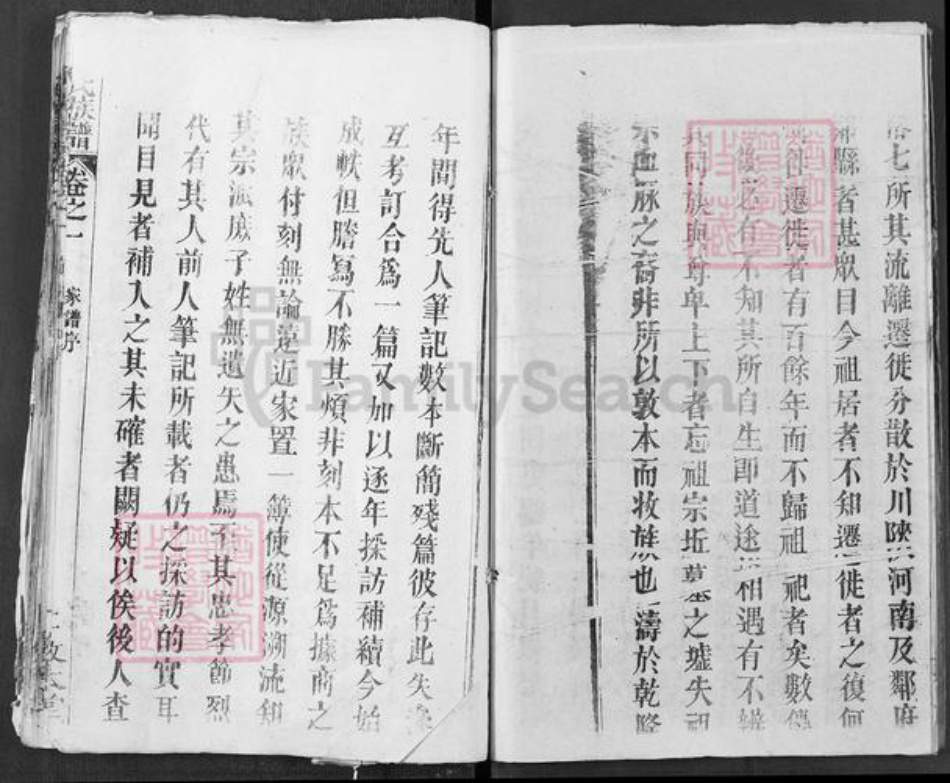 七所其流離遷徙分散於川陝 河南及鄰府
縣者甚眾目今祖居者不知遷徙者之復何
遷徙者有百餘年而不歸祖 祀者矣數傳
後必有不知其所自生即道途 相遇有不
其同族與尊卑上下者忘祖宗坵墓之墟失祖
宗血脈之裔非所以敦本而收族也 濤於乾隆
年間得先人筆記數本斷簡殘篇彼存此失
互考訂合為一篇又加以逐年採訪補續今始
成帙但謄寫不勝其煩非刻本不足為據商之
族眾付刻無論遠近家置一簿使從源溯流知
其宗派庶子姓無遺失之患焉至其忠孝節烈
代有其人前人筆記所載者仍之採訪的實耳
聞目見者補入之其未確者闕疑以俟後人查
氏族譜 卷之一 家譜序
FamilySearch